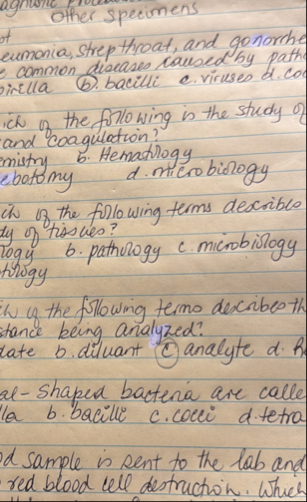 other specimens
eumonia, strep throat, and gonorrhe
common diseases caused by path
irilla b. bacilli c. viruses d. coc
ich of the following is the study of
and coagulation?
emistry b. Hematology
ebotomy d. microbiology
ich of the following terms describes
dy of tissues?
logy b. pathology c. microbiology
tology
ich of the following terms describes th
stance being analyzed?
late b. diluant c analyte d. R
al-shaped bacteria are calle
lla b. bacilli c. cocci d. tetra
d sample is sent to the lab and
red blood cell destruction. Which